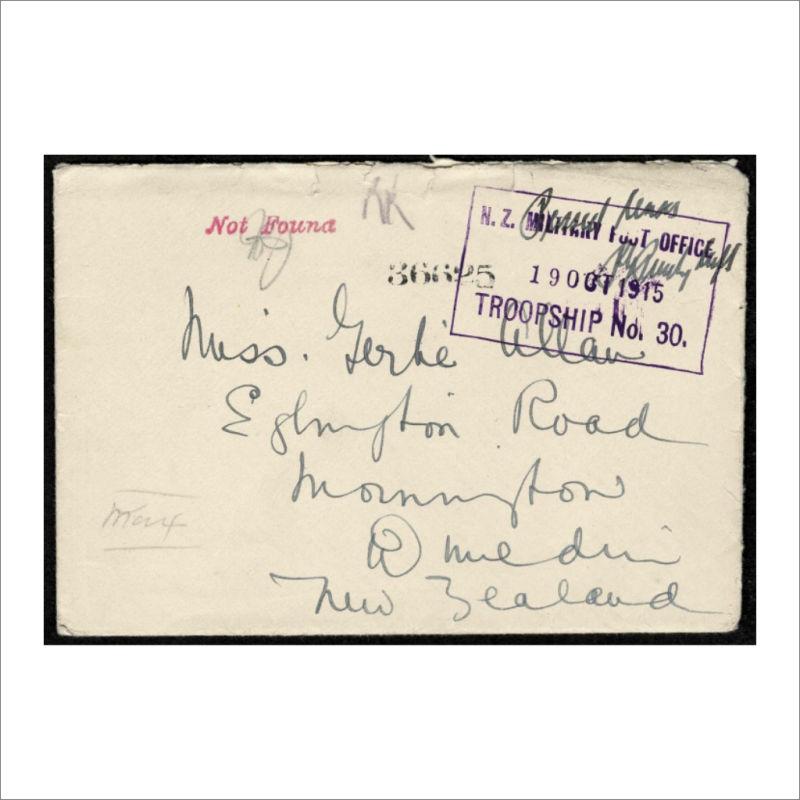 Not Found
KK
36625
N. Z. MILITARY POST OFFICE
19 OCT 1915
TROOPSHIP No. 30.
Miss. Gertie Allan
Eglington Road
Mornington
Dunedin
New Zealand